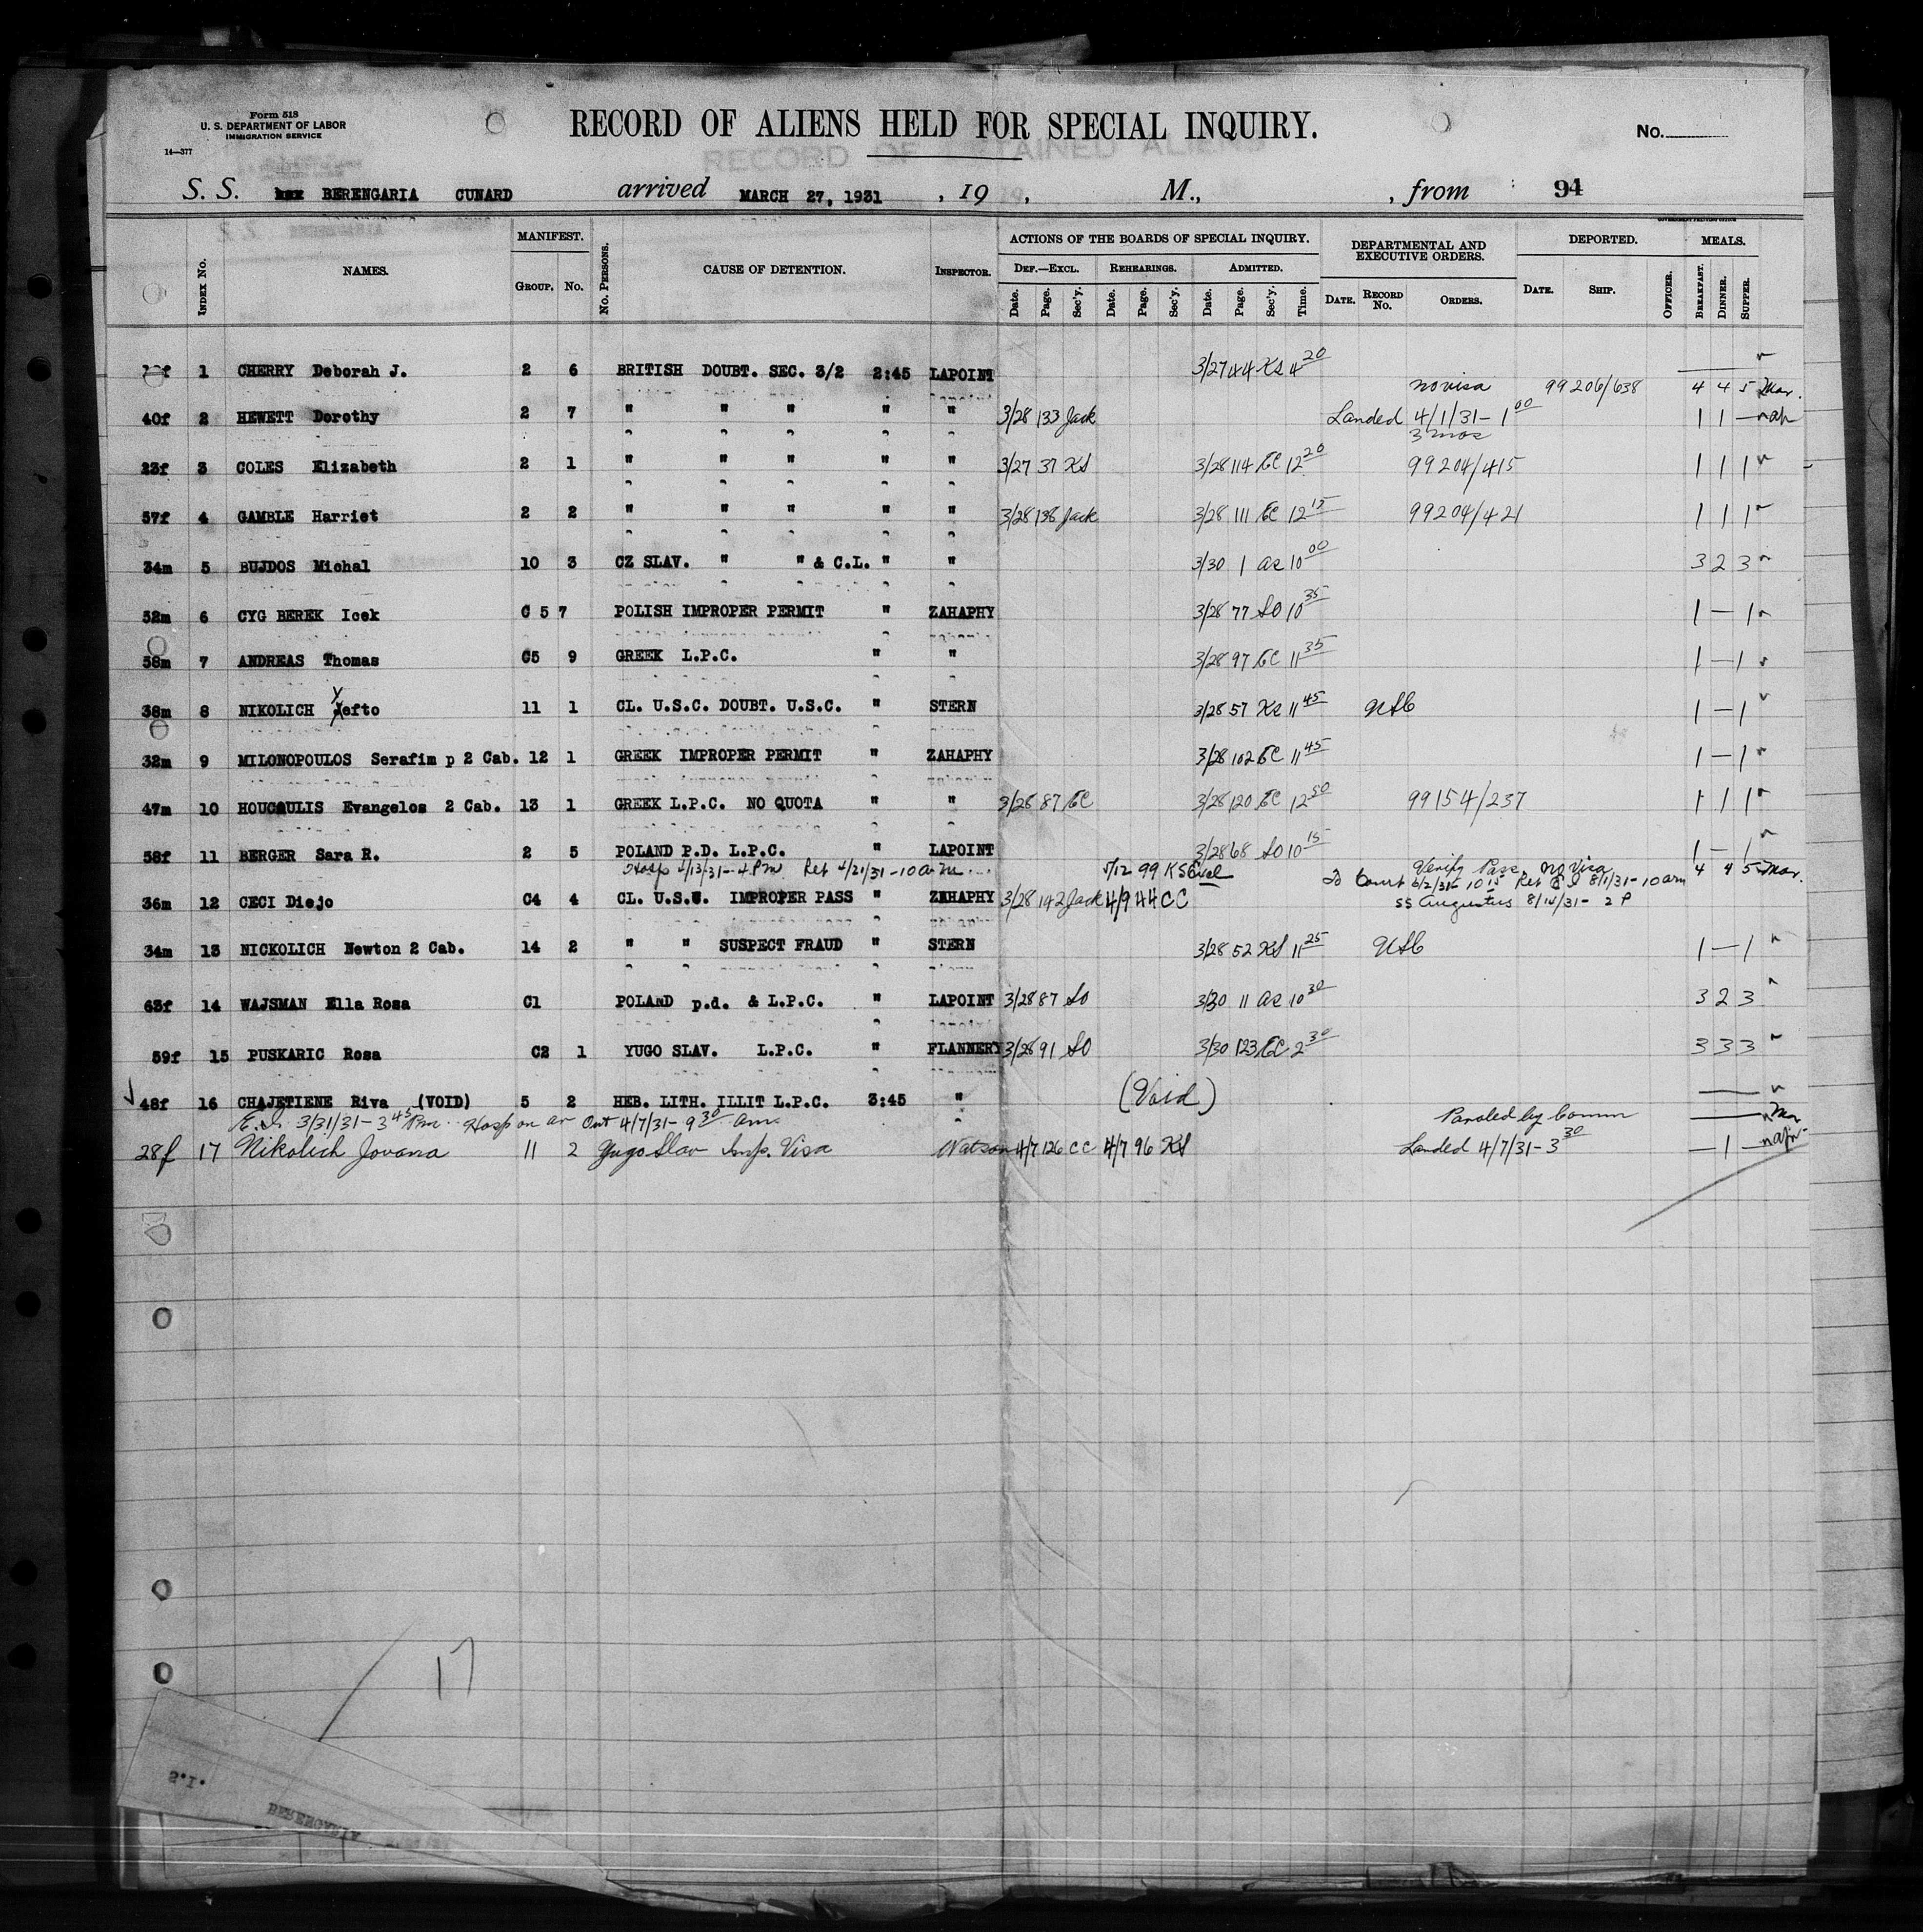 Form 518
U. S. DEPARTMENT OF LABOR
IMMIGRATION SERVICE
14—377
RECORD OF ALIENS HELD FOR SPECIAL INQUIRY.
No.
S. S. BERENGARIA CUNARD arrived MARCH 27, 1931 , 19 , M., , from 94
INDEX No. NAMES. MANIFEST. GROUP. No. No. PERSONS. CAUSE OF DETENTION. INSPECTOR. ACTIONS OF THE BOARDS OF SPECIAL INQUIRY. DEF.—EXCL. Date. Page. Sec'y. REHEARINGS. Date. Page. Sec'y. ADMITTED. Date. Page. Sec'y. Time. DEPARTMENTAL AND EXECUTIVE ORDERS. DATE. RECORD No. ORDERS. DEPORTED. DATE. SHIP. OFFICER. MEALS. BREAKFAST. DINNER. SUPPER.
1 CHERRY Deborah J. 2 6 BRITISH DOUBT. SEC. 3/2 2:45 LAPOINT 3/27 44 KS 4 20
no visa 99206/638 4 4 5 Mar.
40f 2 HEWETT Dorothy 2 7 " " " " " 3/28 133 Jack Landed 4/1/31 - 1 00 1 1 — ap
3 mos
23f 3 COLES Elizabeth 2 1 " " " " " 3/27 37 KS 3/28 114 EC 12 20 99204/415 1 1 1
57f 4 GAMBLE Harriet 2 2 " " " " " 3/28 138 Jack 3/28 111 EC 12 15 99204/421 1 1 1
34m 5 BUJDOS Michal 10 3 CZ SLAV. " " & C.L. " " 3/30 1 10 00 3 2 3
52m 6 CYG BEREK Icek C 5 7 POLISH IMPROPER PERMIT " ZAHAPHY 3/28 77 SO 10 35 1 — 1
58m 7 ANDREAS Thomas C5 9 GREEK L.P.C. " " 3/28 97 EC 11 35 1 — 1
38m 8 NIKOLICH Yefto 11 1 CL. U.S.C. DOUBT. U.S.C. " STERN 3/28 57 KS 11 45 USC 1 — 1
32m 9 MILONOPOULOS Serafim p 2 Cab. 12 1 GREEK IMPROPER PERMIT " ZAHAPHY 3/28 102 EC 11 45 1 — 1
47m 10 HOUCAULIS Evangelos 2 Cab. 13 1 GREEK L.P.C. NO QUOTA " " 3/28 87 EC 3/28 120 EC 12 50 99154/237 1 1 1
58f 11 BERGER Sara R. 2 5 POLAND P.D. L.P.C. " LAPOINT 3/28 68 SO 10 15 1 — 1
Hosp 4/13/31 - 4 Pm Ret 4/21/31 - 10 am 5/12 99 KS Excl Verify Pass. No Visa 4 4 5 Mar.
36m 12 CECI Diejo C4 4 CL. U.S.W. IMPROPER PASS " ZAHAPHY 3/28 142 Jack 4/9 44 CC To Court 6/2/31 - 10 15 Ret 8/1/31 - 10 am
SS Augustus 8/14/31 - 2 P
34m 13 NICKOLICH Newton 2 Cab. 14 2 " " SUSPECT FRAUD " STERN 3/28 52 KS 11 25 USC 1 — 1
63f 14 WAJSMAN Ella Rosa C1 POLAND p.d. & L.P.C. " LAPOINT 3/28 87 SO 3/30 11 10 30 3 2 3
59f 15 PUSKARIC Rosa C2 1 YUGO SLAV. L.P.C. " FLANNERY 3/28 91 SO 3/30 123 EC 2 30 3 3 3
48f 16 CHAJETIENE Riva (VOID) 5 2 HEB. LITH. ILLIT L.P.C. 3:45 " (Void)
E.I. 3/31/31 - 3 45 Pm Hosp on ar Out 4/7/31 - 9 30 am Paroled by Comm Mar
28f 17 Nikolich Jovana 11 2 Yugo Slav Imp. Visa Watson 4/7 126 CC 4/7 96 KS Landed 4/7/31 - 3 30 — 1 —
17
S.I.
BERENGARIA